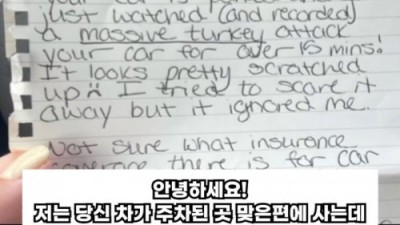 just watched (and recorded)
a massive turkey attack
your car for over 15 mins!
It looks pretty scratched
up :( I tried to scare it
away but it ignored me.
Not sure what insurance
there is for car
안녕하세요!
저는 당신 차가 주차된 곳 맞은편에 사는데